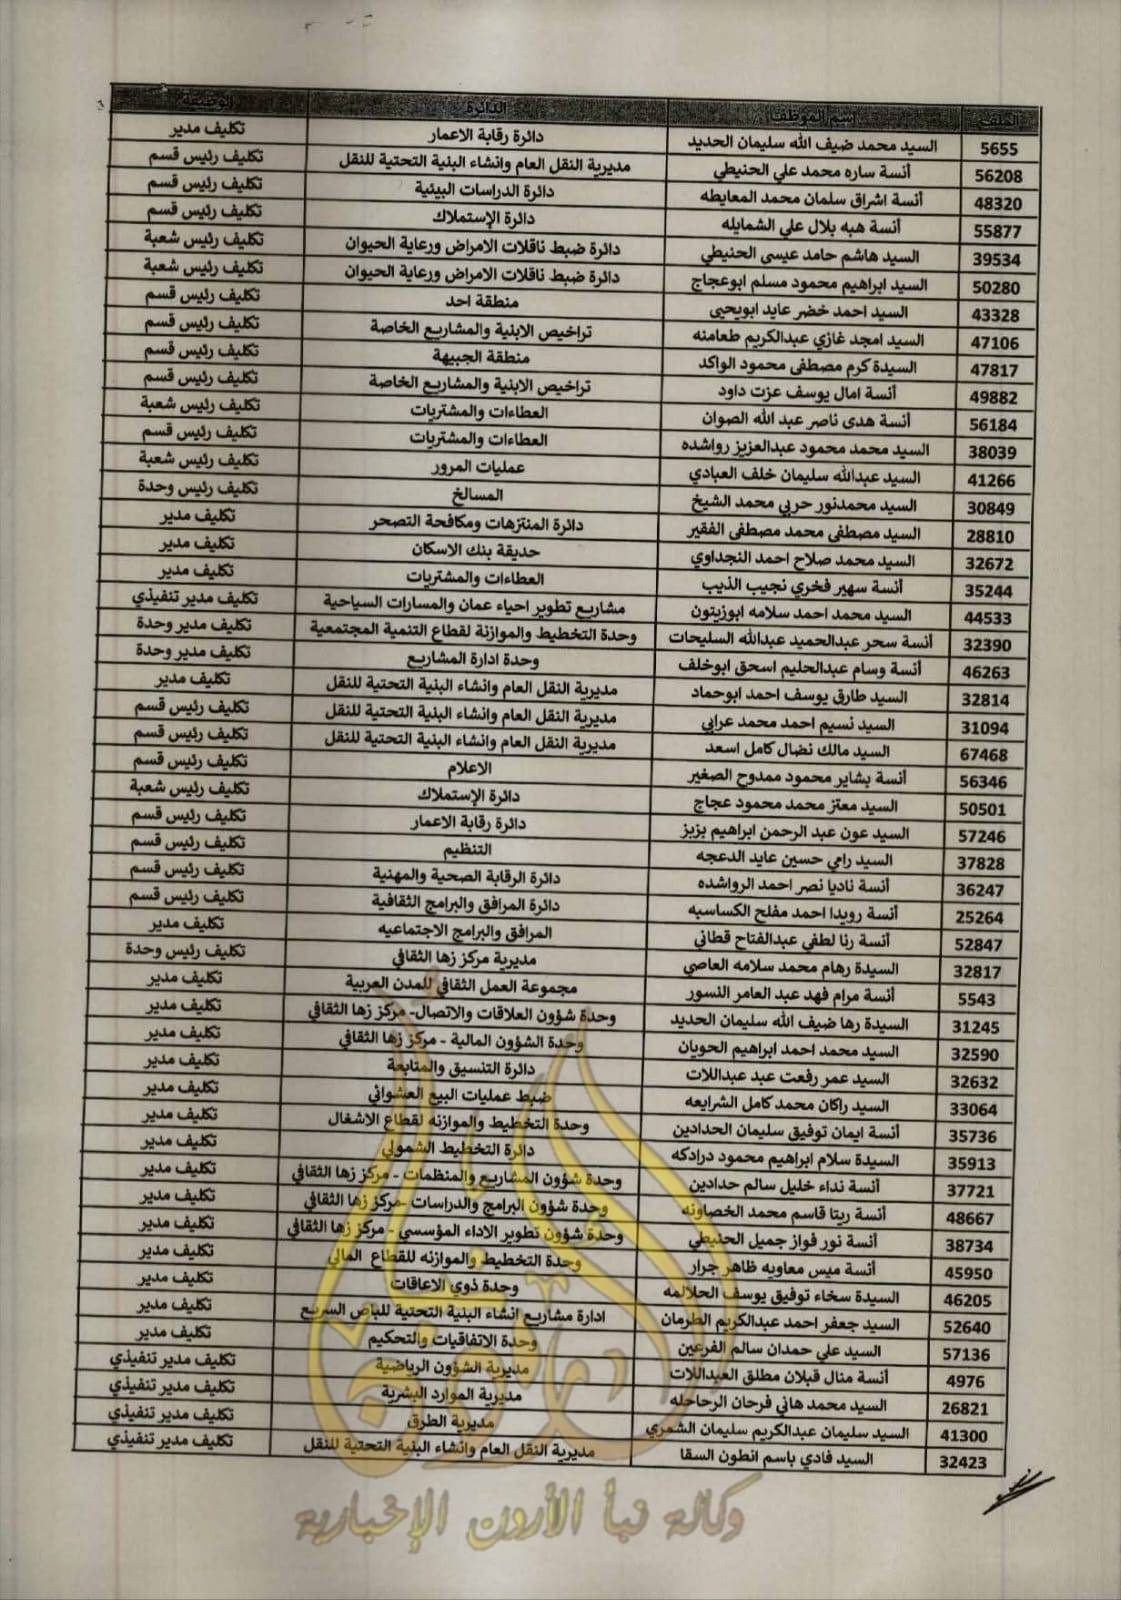 الملف إسم الموظف الدائرة الوضيعة
5655 السيد محمد ضيف الله سليمان الحديد دائرة رقابة الاعمار تكليف مدير
56208 أنسة ساره محمد علي الحنيطي مديرية النقل العام وانشاء البنية التحتية للنقل تكليف رئيس قسم
48320 أنسة اشراق سلمان محمد المعايطه دائرة الدراسات البيئية تكليف رئيس قسم
55877 أنسة هبه بلال علي الشمايله دائرة الإستملاك تكليف رئيس قسم
39534 السيد هاشم حامد عيسى الحنيطي دائرة ضبط ناقلات الامراض ورعاية الحيوان تكليف رئيس شعبة
50280 السيد ابراهيم محمود مسلم ابوعجاج دائرة ضبط ناقلات الامراض ورعاية الحيوان تكليف رئيس شعبة
43328 السيد احمد خضر عايد ابويحيى منطقة احد تكليف رئيس قسم
47106 السيد امجد غازي عبدالكريم طعامنه تراخيص الابنية والمشاريع الخاصة تكليف رئيس قسم
47817 السيدة كرم مصطفى محمود الواكد منطقة الجبيهة تكليف رئيس قسم
49882 أنسة امال يوسف عزت داود تراخيص الابنية والمشاريع الخاصة تكليف رئيس قسم
56184 أنسة هدى ناصر عبد الله الصوان العطاءات والمشتريات تكليف رئيس شعبة
38039 السيد محمد محمود عبدالعزيز رواشده العطاءات والمشتريات تكليف رئيس قسم
41266 السيد عبدالله سليمان خلف العبادي عمليات المرور تكليف رئيس شعبة
30849 السيد محمدنور حربي محمد الشيخ المسالخ تكليف رئيس وحدة
28810 السيد مصطفى محمد مصطفى الفقير دائرة المنتزهات ومكافحة التصحر تكليف مدير
32672 السيد محمد صلاح احمد النجداوي حديقة بنك الاسكان تكليف مدير
35244 أنسة سهير فخري نجيب الذيب العطاءات والمشتريات تكليف مدير
44533 السيد محمد احمد سلامه ابوزيتون مشاريع تطوير احياء عمان والمسارات السياحية تكليف مدير تنفيذي
32390 أنسة سحر عبدالحميد عبدالله السليحات وحدة التخطيط والموازنة لقطاع التنمية المجتمعية تكليف مدير وحدة
46263 أنسة وسام عبدالحليم اسحق ابوخلف وحدة ادارة المشاريع تكليف مدير وحدة
32814 السيد طارق يوسف احمد ابوحماد مديرية النقل العام وانشاء البنية التحتية للنقل تكليف مدير
31094 السيد نسيم احمد محمد عرابي مديرية النقل العام وانشاء البنية التحتية للنقل تكليف رئيس قسم
67468 السيد مالك نضال كامل اسعد مديرية النقل العام وانشاء البنية التحتية للنقل تكليف رئيس قسم
56346 أنسة بشاير محمود ممدوح الصغير الاعلام تكليف رئيس قسم
50501 السيد معتز محمد محمود عجاج دائرة الإستملاك تكليف رئيس شعبة
57246 السيد عون عبد الرحمن ابراهيم بزبز دائرة رقابة الاعمار تكليف رئيس قسم
37828 السيد رامي حسين عايد الدعجه التنظيم تكليف رئيس قسم
36247 أنسة ناديا نصر احمد الرواشده دائرة الرقابة الصحية والمهنية تكليف رئيس قسم
25264 أنسة رويدا احمد مفلح الكساسبه دائرة المرافق والبرامج الثقافية تكليف رئيس قسم
52847 أنسة رنا لطفي عبدالفتاح قطاني المرافق والبرامج الاجتماعيه تكليف مدير
32817 السيدة رهام محمد سلامه العاصي مديرية مركز زها الثقافي تكليف رئيس وحدة
5543 أنسة مرام فهد عبد العامر النسور مجموعة العمل الثقافي للمدن العربية تكليف مدير
31245 السيدة رها ضيف الله سليمان الحديد وحدة شؤون العلاقات والاتصال- مركز زها الثقافي تكليف مدير
32590 السيد محمد احمد ابراهيم الحويان وحدة الشؤون المالية - مركز زها الثقافي تكليف مدير
32632 السيد عمر رفعت عبد عبداللات دائرة التنسيق والمتابعة تكليف مدير
33064 السيد راكان محمد كامل الشرايعه ضبط عمليات البيع العشوائي تكليف مدير
35736 أنسة ايمان توفيق سليمان الحدادين وحدة التخطيط والموازنه لقطاع الاشغال تكليف مدير
35913 السيدة سلام ابراهيم محمود درادكه دائرة التخطيط الشمولي تكليف مدير
37721 أنسة نداء خليل سالم حدادين وحدة شؤون المشاريع والمنظمات - مركز زها الثقافي تكليف مدير
48667 أنسة ريتا قاسم محمد الخصاونه وحدة شؤون البرامج والدراسات -مركز زها الثقافي تكليف مدير
38734 أنسة نور فواز جميل الحنيطي وحدة شؤون تطوير الاداء المؤسسي - مركز زها الثقافي تكليف مدير
45950 أنسة ميس معاويه ظاهر جرار وحدة التخطيط والموازنه للقطاع المالي تكليف مدير
46205 السيدة سخاء توفيق يوسف الحلالمه وحدة ذوي الاعاقات تكليف مدير
52640 السيد جعفر احمد عبدالكريم الطرمان ادارة مشاريع انشاء البنية التحتية للباص السريع تكليف مدير
57136 السيد علي حمدان سالم الفرعين وحدة الاتفاقيات والتحكيم تكليف مدير
4976 أنسة منال قبلان مطلق العبداللات مديرية الشؤون الرياضية تكليف مدير تنفيذي
26821 السيد محمد هاني فرحان الرحاحله مديرية الموارد البشرية تكليف مدير تنفيذي
41300 السيد سليمان عبدالكريم سليمان الشمري مديرية الطرق تكليف مدير تنفيذي
32423 السيد فادي باسم انطون السقا مديرية النقل العام وانشاء البنية التحتية للنقل تكليف مدير تنفيذي
وكالة نبأ الأردن الإخبارية